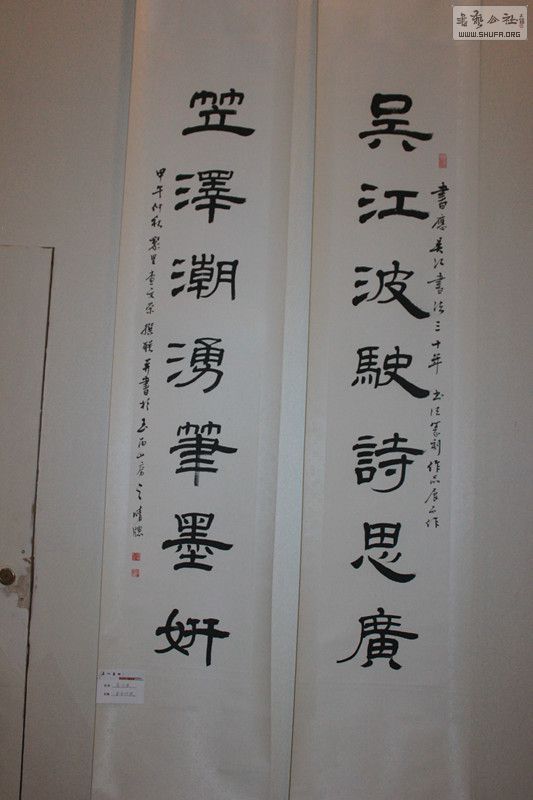 吴江波駛詩思廣
書應吴江書法三十年 书法篆刻作品展之作
笠澤潮湧筆墨妍
甲午仲秋黎里查文荣撰联并書於
書藝公社
WWW.SHUFA.ORG